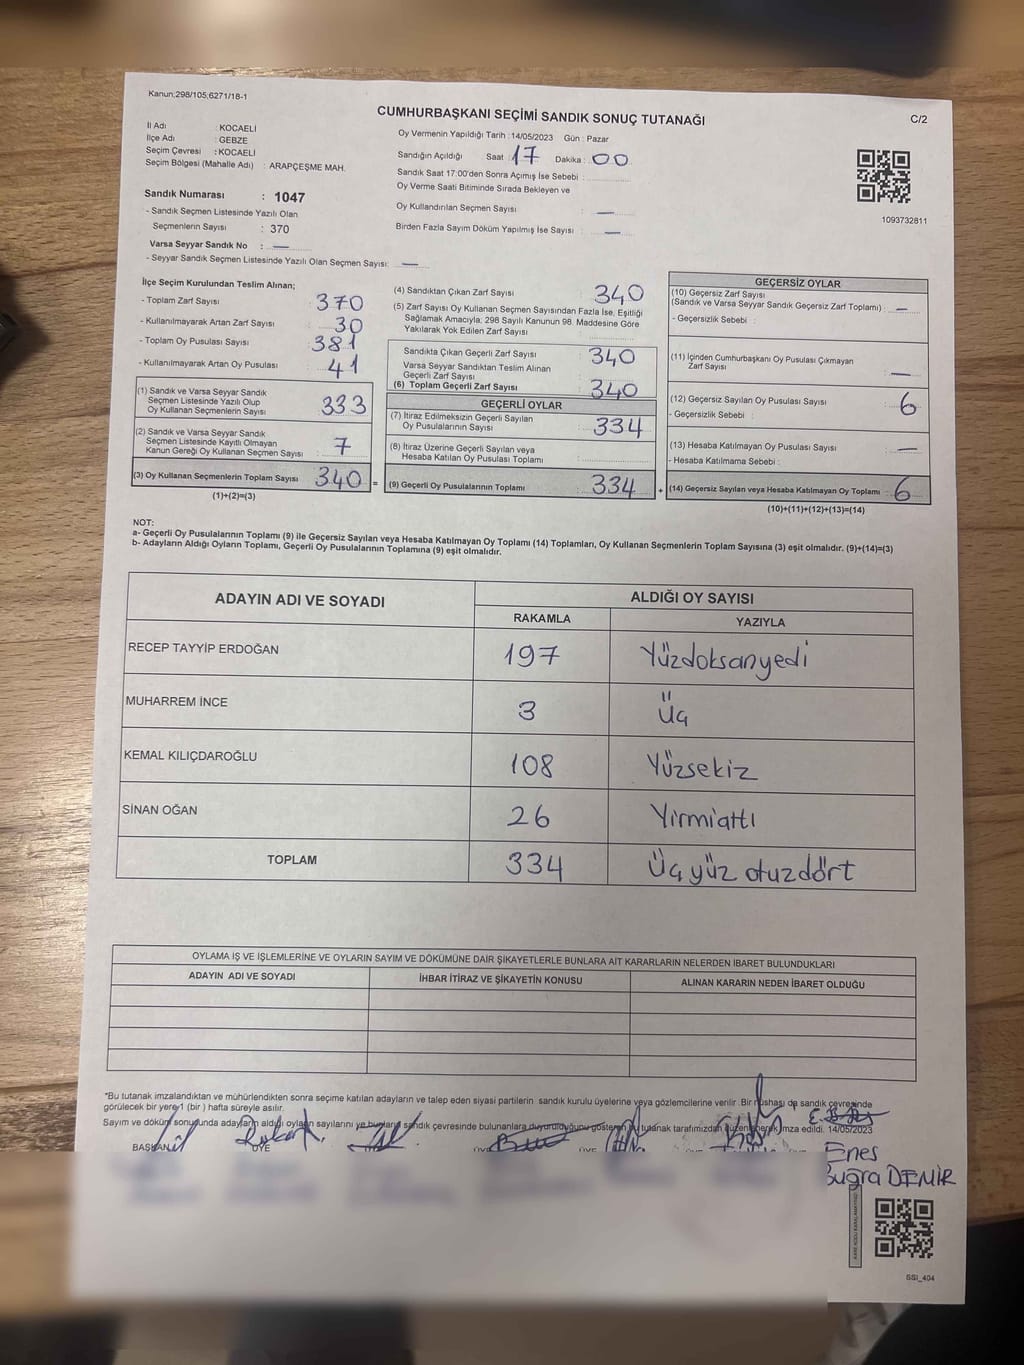 Kanun;298/105;6271/18-1
CUMHURBAŞKANI SEÇİMİ SANDIK SONUÇ TUTANAĞI
C/2
İl Adı : KOCAELİ
İlçe Adı : GEBZE
Seçim Çevresi : KOCAELİ
Seçim Bölgesi (Mahalle Adı) : ARAPÇEŞME MAH.
Oy Vermenin Yapıldığı Tarih : 14/05/2023 Gün : Pazar
Sandığın Açıldığı Saat : 17 Dakika : 00
Sandık Saat 17:00'den Sonra Açımış İse Sebebi :
Oy Verme Saati Bitiminde Sırada Bekleyen ve
Oy Kullandırılan Seçmen Sayısı : —
Birden Fazla Sayım Döküm Yapılmış İse Sayısı : —
1093732811
Sandık Numarası : 1047
- Sandık Seçmen Listesinde Yazılı Olan
Seçmenlerin Sayısı : 370
Varsa Seyyar Sandık No : —
- Seyyar Sandık Seçmen Listesinde Yazılı Olan Seçmen Sayısı: —
İlçe Seçim Kurulundan Teslim Alınan;
- Toplam Zarf Sayısı 370
- Kullanılmayarak Artan Zarf Sayısı : 30
- Toplam Oy Pusulası Sayısı : 381
- Kullanılmayarak Artan Oy Pusulası : 41
(1) Sandık ve Varsa Seyyar Sandık
Seçmen Listesinde Yazılı Olup
Oy Kullanan Seçmenlerin Sayısı : 333
(2) Sandık ve Varsa Seyyar Sandık
Seçmen Listesinde Kayıtlı Olmayan
Kanun Gereği Oy Kullanan Seçmen Sayısı : 7
(3) Oy Kullanan Seçmenlerin Toplam Sayısı 340 =
(1)+(2)=(3)
(4) Sandıktan Çıkan Zarf Sayısı : 340
(5) Zarf Sayısı Oy Kullanan Seçmen Sayısından Fazla İse, Eşitliği
Sağlamak Amacıyla, 298 Sayılı Kanunun 98. Maddesine Göre
Yakılarak Yok Edilen Zarf Sayısı :
Sandıkta Çıkan Geçerli Zarf Sayısı : 340
Varsa Seyyar Sandıktan Teslim Alınan
Geçerli Zarf Sayısı :
(6) Toplam Geçerli Zarf Sayısı : 340
GEÇERLİ OYLAR
(7) İtiraz Edilmeksizin Geçerli Sayılan
Oy Pusulalarının Sayısı : 334
(8) İtiraz Üzerine Geçerli Sayılan veya
Hesaba Katılan Oy Pusulası Toplamı :
(9) Geçerli Oy Pusulalarının Toplamı : 334 +
GEÇERSİZ OYLAR
(10) Geçersiz Zarf Sayısı
(Sandık ve Varsa Seyyar Sandık Geçersiz Zarf Toplamı) : —
- Geçersizlik Sebebi :
(11) İçinden Cumhurbaşkanı Oy Pusulası Çıkmayan
Zarf Sayısı : —
(12) Geçersiz Sayılan Oy Pusulası Sayısı : 6
- Geçersizlik Sebebi :
(13) Hesaba Katılmayan Oy Pusulası Sayısı : —
- Hesaba Katılmama Sebebi :
(14) Geçersiz Sayılan veya Hesaba Katılmayan Oy Toplamı : 6
(10)+(11)+(12)+(13)=(14)
NOT:
a- Geçerli Oy Pusulalarının Toplamı (9) ile Geçersiz Sayılan veya Hesaba Katılmayan Oy Toplamı (14) Toplamları, Oy Kullanan Seçmenlerin Toplam Sayısına (3) eşit olmalıdır. (9)+(14)=(3)
b- Adayların Aldığı Oyların Toplamı, Geçerli Oy Pusulalarının Toplamına (9) eşit olmalıdır.
ADAYIN ADI VE SOYADI
ALDIĞI OY SAYISI
RAKAMLA YAZIYLA
RECEP TAYYİP ERDOĞAN 197 Yüzdoksanyedi
MUHARREM İNCE 3 Üç
KEMAL KILIÇDAROĞLU 108 Yüzsekiz
SİNAN OĞAN 26 Yirmialtı
TOPLAM 334 Üçyüz otuzdört
OYLAMA İŞ VE İŞLEMLERİNE VE OYLARIN SAYIM VE DÖKÜMÜNE DAİR ŞİKAYETLERLE BUNLARA AİT KARARLARIN NELERDEN İBARET BULUNDUKLARI
ADAYIN ADI VE SOYADI İHBAR İTİRAZ VE ŞİKAYETİN KONUSU ALINAN KARARIN NEDEN İBARET OLDUĞU
*Bu tutanak imzalandıktan ve mühürlendikten sonra seçime katılan adayların ve talep eden siyasi partilerin sandık kurulu üyelerine veya gözlemcilerine verilir. Bir nüshası da sandık çevresinde
görülecek bir yere 1 (bir) hafta süreyle asılır.
Sayım ve döküm sonunda adayların aldığı oyların sayılarını ve bunların sandık çevresinde bulunanlara duyurulduğunu gösteren bu tutanak tarafımızdan düzenlenerek imza edildi. 14/05/2023
BAŞKAN ÜYE
Enes
Buğra DEMİR
SSI_404